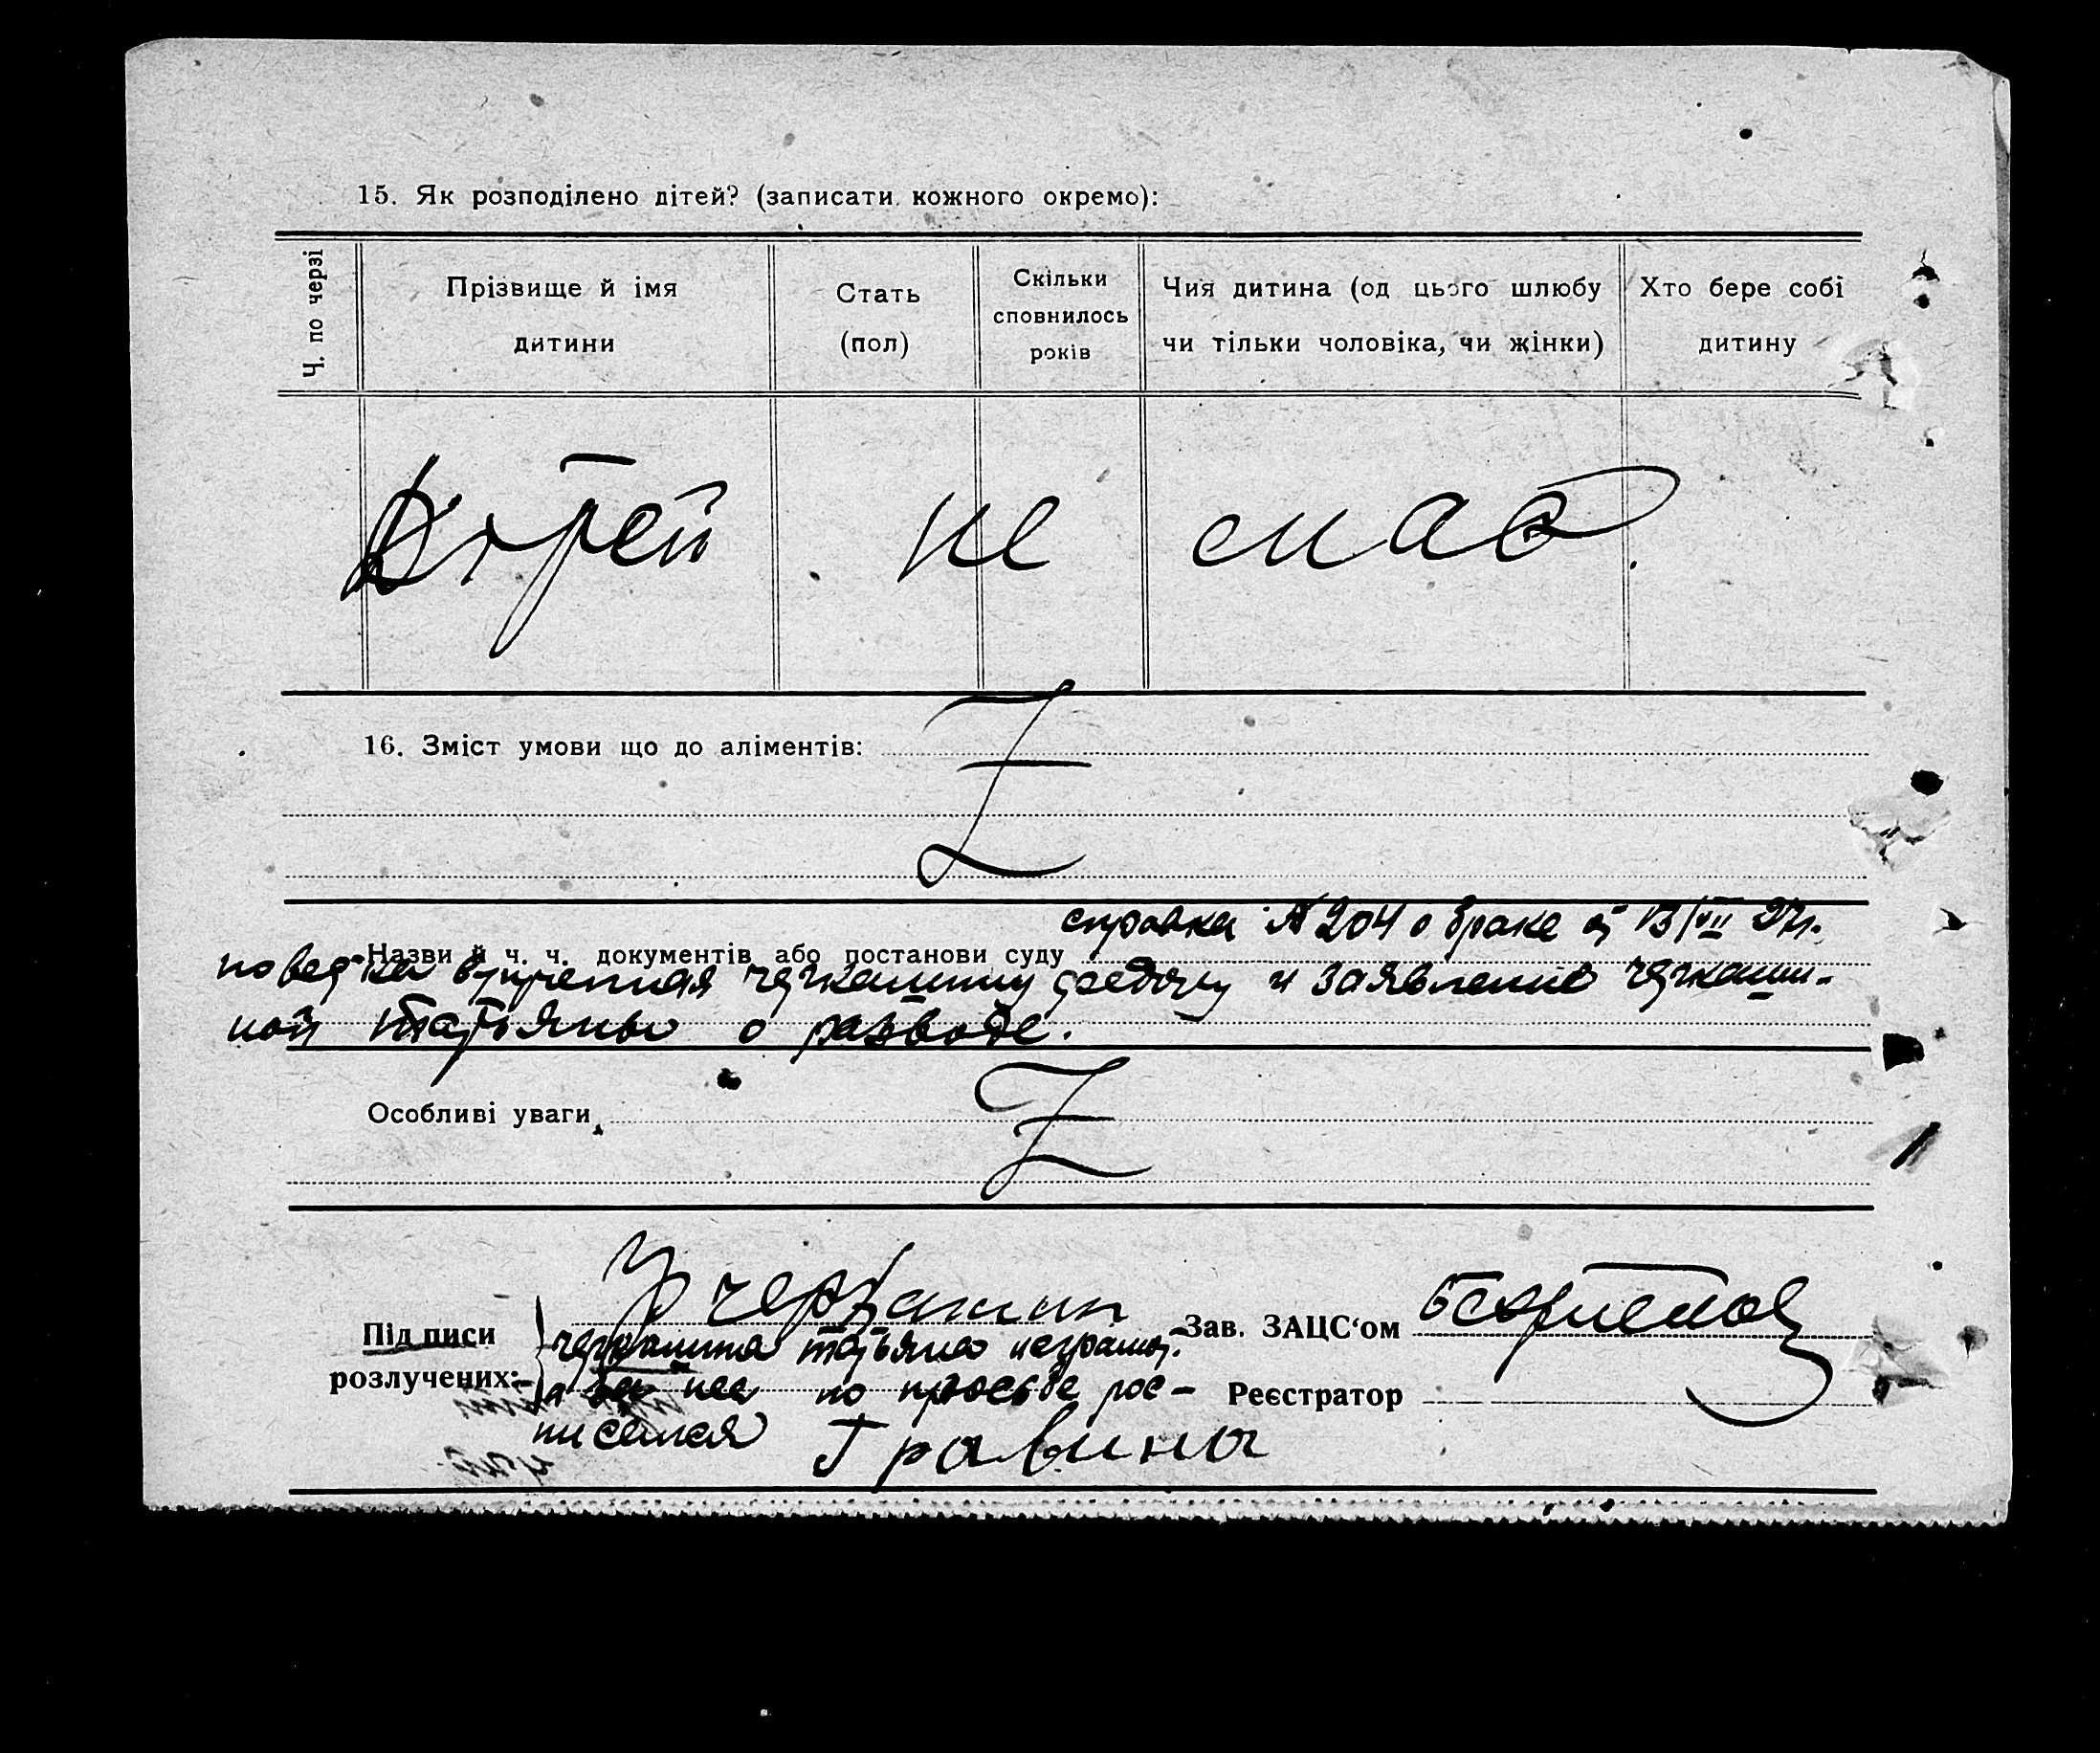 15. Як розподілено дітей? (записати кожного окремо):
Ч. по черзі
Прізвище й імя дитини
Стать (пол)
Скільки сповнилось років
Чия дитина (од цього шлюбу чи тільки чоловіка, чи жінки)
Хто бере собі дитину
Дітей не має
16. Зміст умови що до аліментів:
Z
справка № 204 о браке от 13/VII 27г.
Назви й ч. ч. документів або постанови суду
повестка врученная Черкашину и заявление Черкаши-
ной Татьяны о разводе.
Особливі уваги
Z
Підписи розлучених:
Черкашин
Зав. ЗАЦС‘ом
Черкашина Татьяна неграмот.
а за нее по просьбе рос-
Реєстратор
писался Гравины